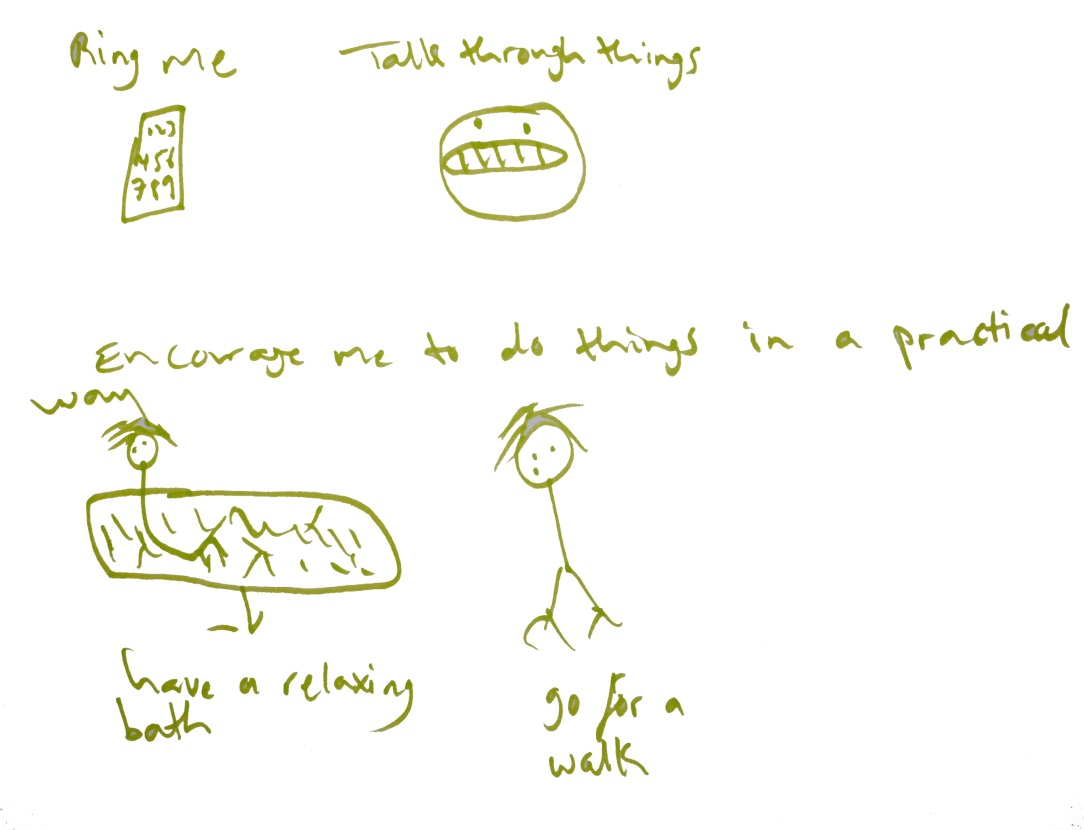 Ring me
Talk through things
123
456
789
Encourage me to do things in a practical
way
have a relaxing
bath
go for a
walk